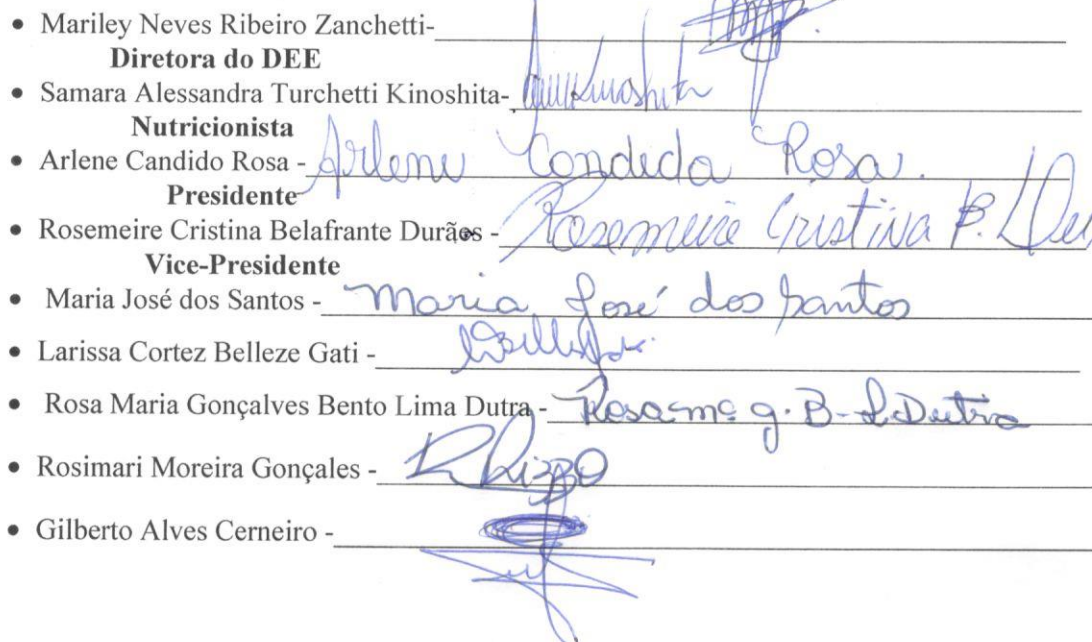 • Mariley Neves Ribeiro Zanchetti-
Diretora do DEE
• Samara Alessandra Turchetti Kinoshita- Kinoshita
Nutricionista
• Arlene Candido Rosa - Arlene Condida Rosa.
Presidente
• Rosemeire Cristina Belafrante Durães - Rosemeire Cristina B.
Vice-Presidente
• Maria José dos Santos - Maria José dos Santos
• Larissa Cortez Belleze Gati -
• Rosa Maria Gonçalves Bento Lima Dutra - Rosa mª g. B. L Dutra
• Rosimari Moreira Gonçales -
• Gilberto Alves Cerneiro -